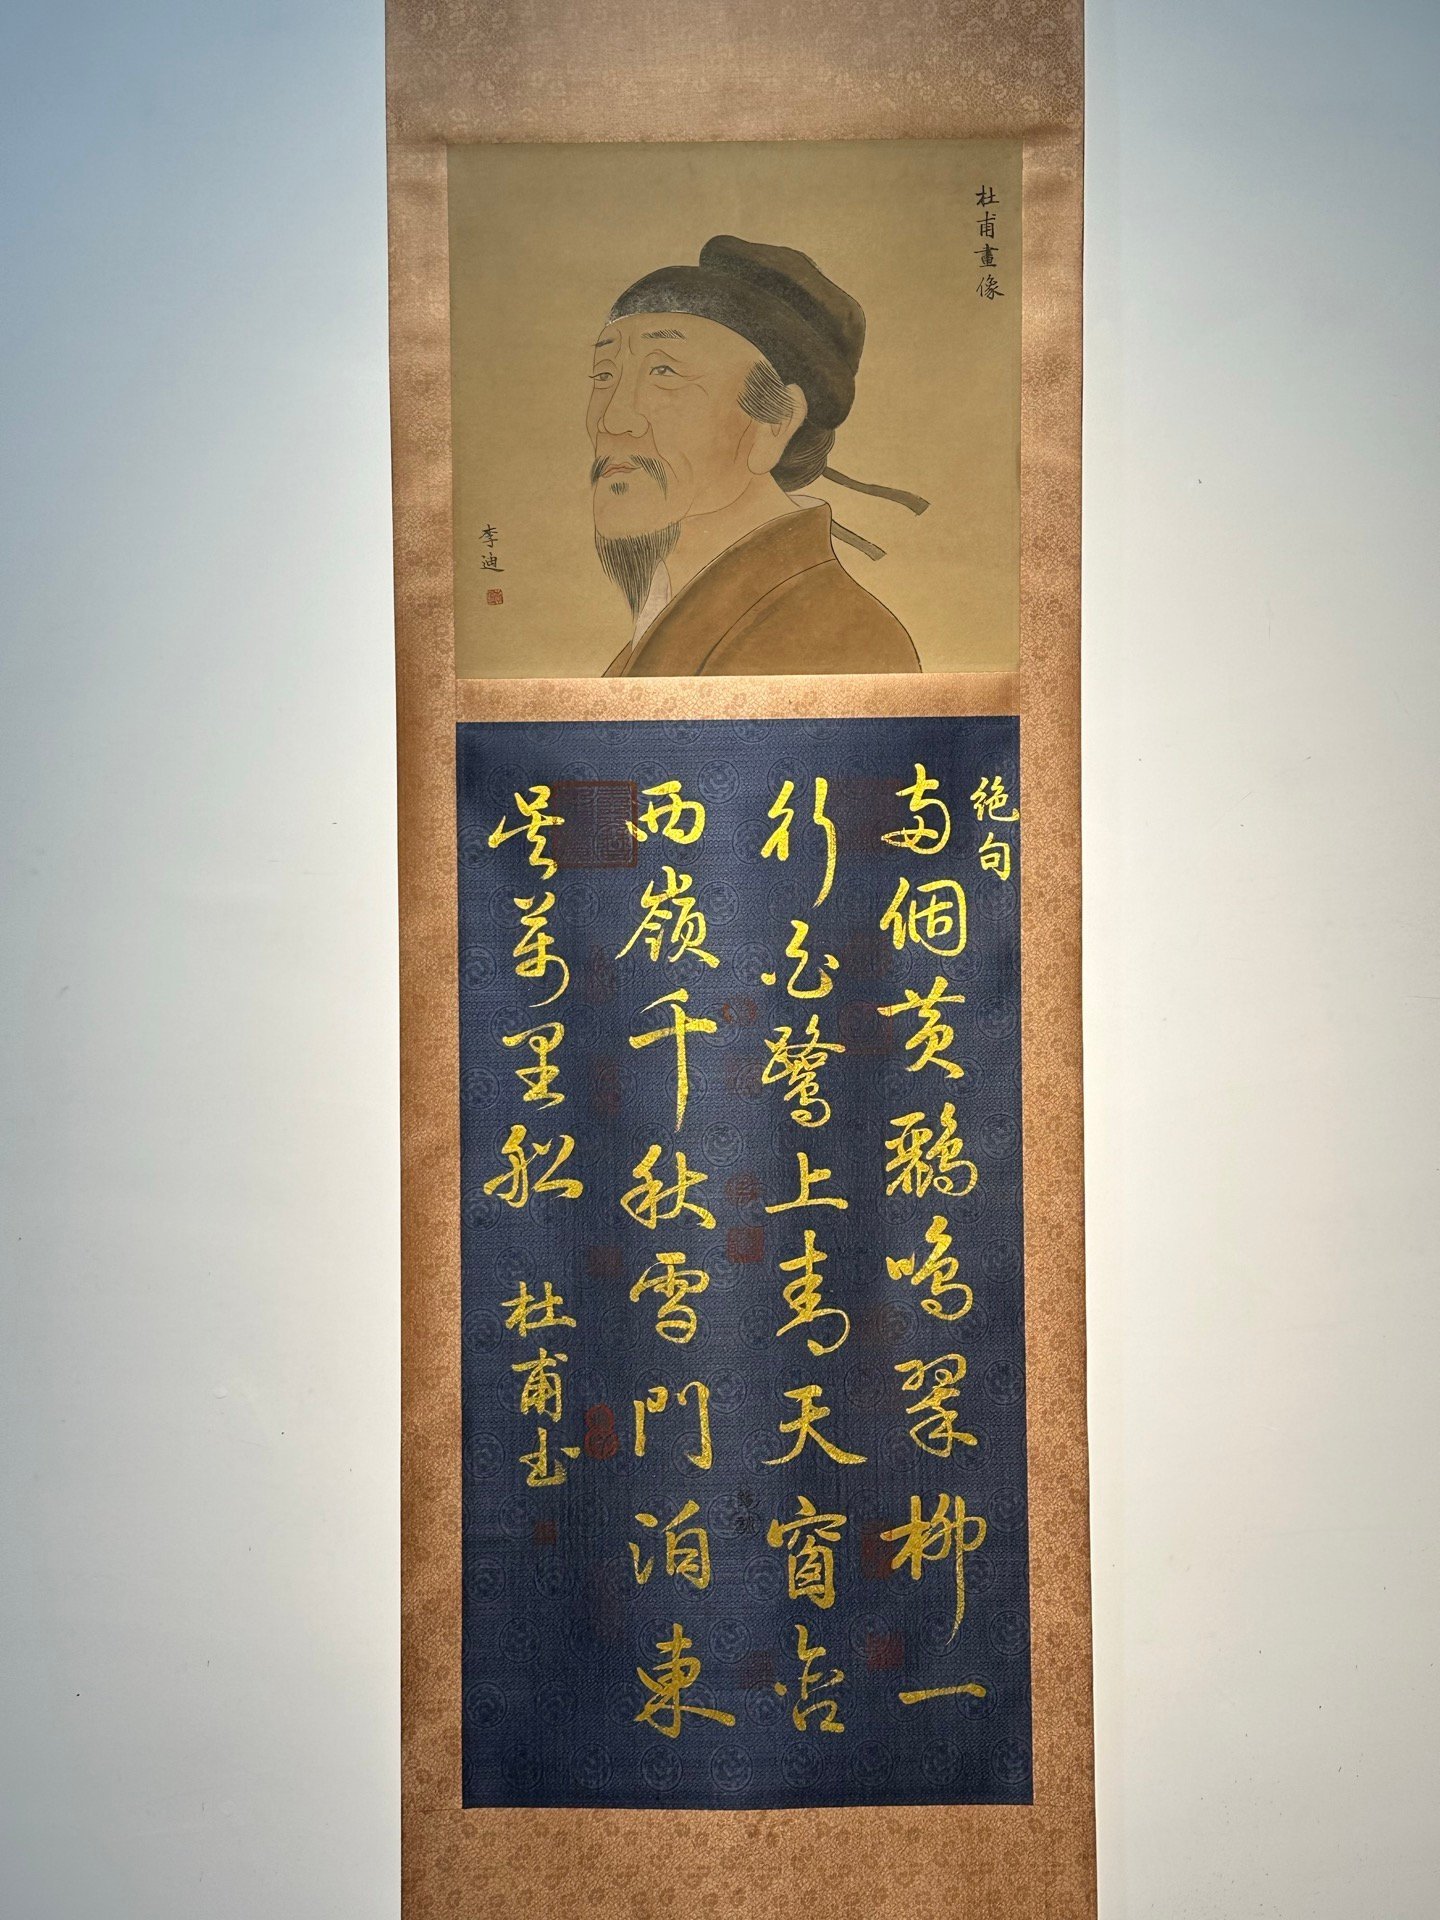 杜甫畫像
李迪
絶句
两個黄鸝鳴翠柳一
行白鷺上青天窗含
西嶺千秋雪門泊東
吴萬里船 杜甫书